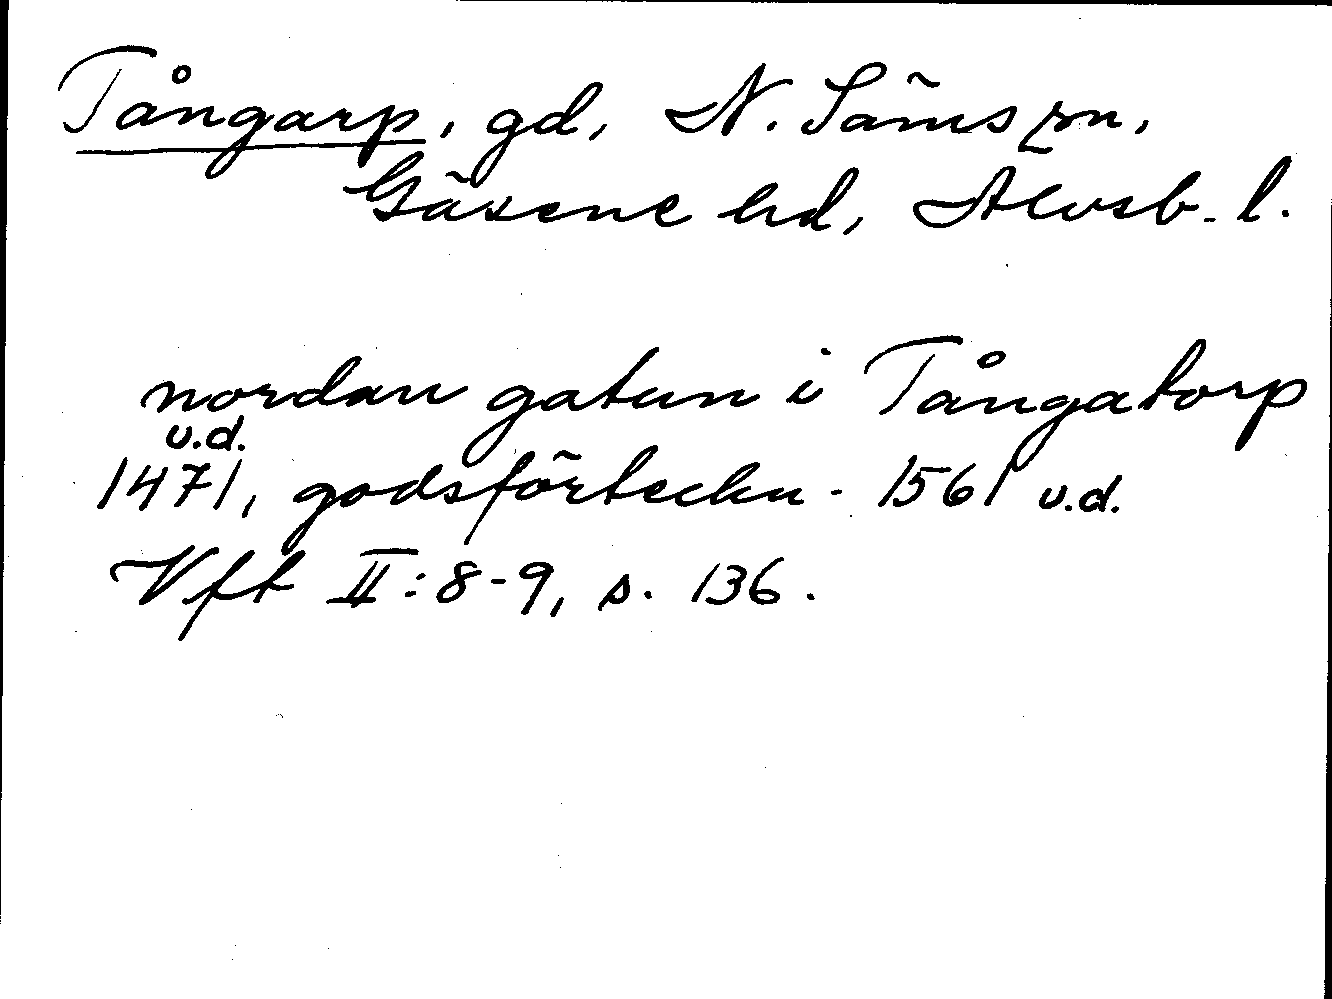 Tångarp, gd, N. Säms sn,
Gäsene hd, Älvsb. l.
nordan gatun i Tångatorp
u.d.
1471, godsförteckn. 1561 u.d.
Vft II:8-9, s. 136.